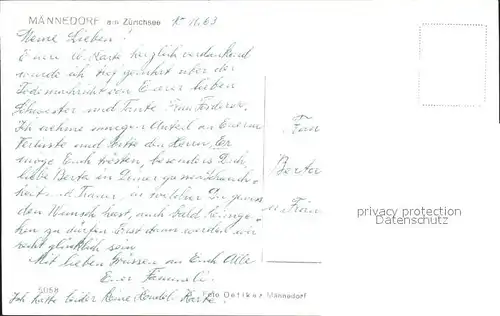 MÄNNEDORF am Zürichsee 15.11.63
Meine Lieben!
Eure l. Karte herzlich verdankend
wurde ich tief gerührt über die
Todesnachricht von Eurer lieben
Schwester und Tante Frau
Ich nehme innigen Anteil an Eurem
Verluste und bitte den Herrn, Er
möge Euch trösten, besonders Dich,
liebe Berta in Deiner
heit. A. Trauer, in welcher Du gewiss
den Wunsch hast, auch bald heimge-
hen zu dürfen. Erst dann werden wir
recht glücklich sein
Mit lieben Grüssen an Euch Alle
Euer
5058 Foto Dettker Männedorf
Ich hatte leider keine Kondol. Karte.
Frau
Berta
u. Frau
privacy protection
Datenschutz